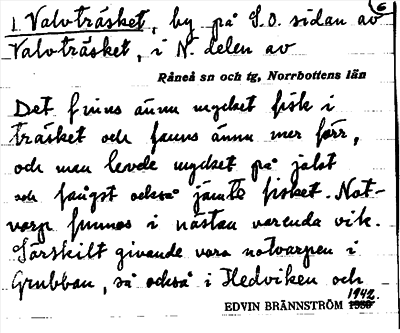 1 Valvträsket, by på S.O. sidan av 6
Valvträsket, i N. delen av
Råneå sn och tg, Norrbottens län
Det finns ännu mycket fisk i
träsket och fanns ännu mer förr,
och man levde mycket på jakt
och fångst också jämte fisket. Not-
varp finnas i nästan varenda vik.
Särskilt givande vara notvarpen i
Grubban, så också i Hedviken och
EDVIN BRÄNNSTRÖM 1942